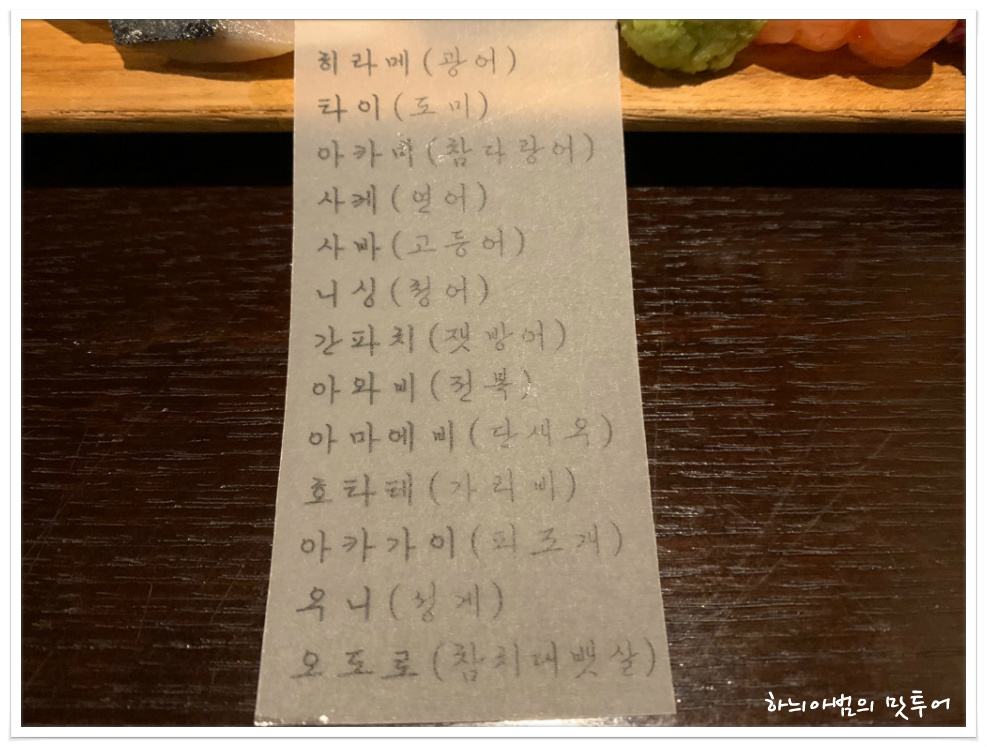 히라메(광어)
타이(도미)
아카미(참다랑어)
사케(연어)
사바(고등어)
니싱(청어)
간파치(잿방어)
아와비(전복)
아마에비(단새우)
호타테(가리비)
아카가이(피조개)
우니(성게)
오도로(참치대뱃살)
하늬아범의 맛투어